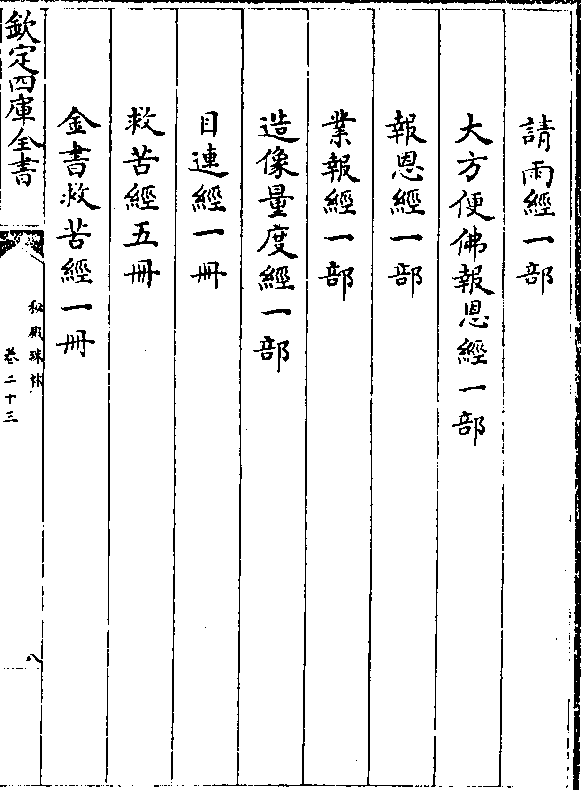 請雨經一部
大方便佛報恩經一部
報恩經一部
業報經一部
造像量度經一部
目連經一冊
救苦經五冊
金書救苦經一冊
欽定四庫全書
秘殿珠林
卷二十三
八